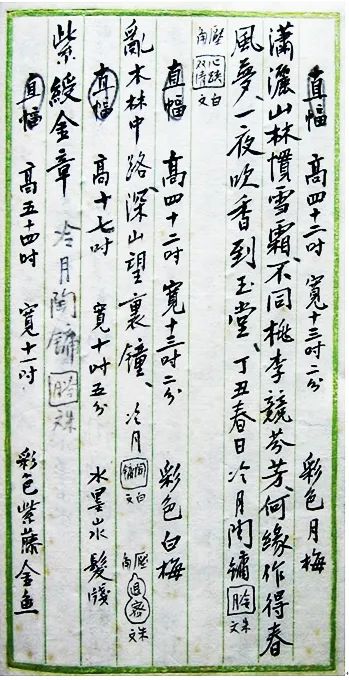 直幅 高四十二吋 寬十三吋二分 彩色月梅
瀟灑山林慣雪霜、不同桃李競芬芳、何緣作得春
風夢、一夜吹香到玉堂、丁丑春日冷月陶鏞 朱文
壓角 心跡双清 白文
直幅 高四十二吋 寬十三吋二分 彩色白梅
亂木林中路、深山望裏鐘、冷月 陶鏞 白文 壓角 朱文
直幅 高十七吋 寬十吋五分 水墨山水 髮箋
紫綬金章 冷月陶鏞 朱文
直幅 高五十四吋 寬十一吋 彩色紫藤金魚